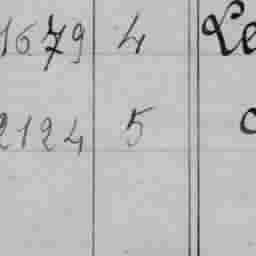 1679 4 Le
2124 5